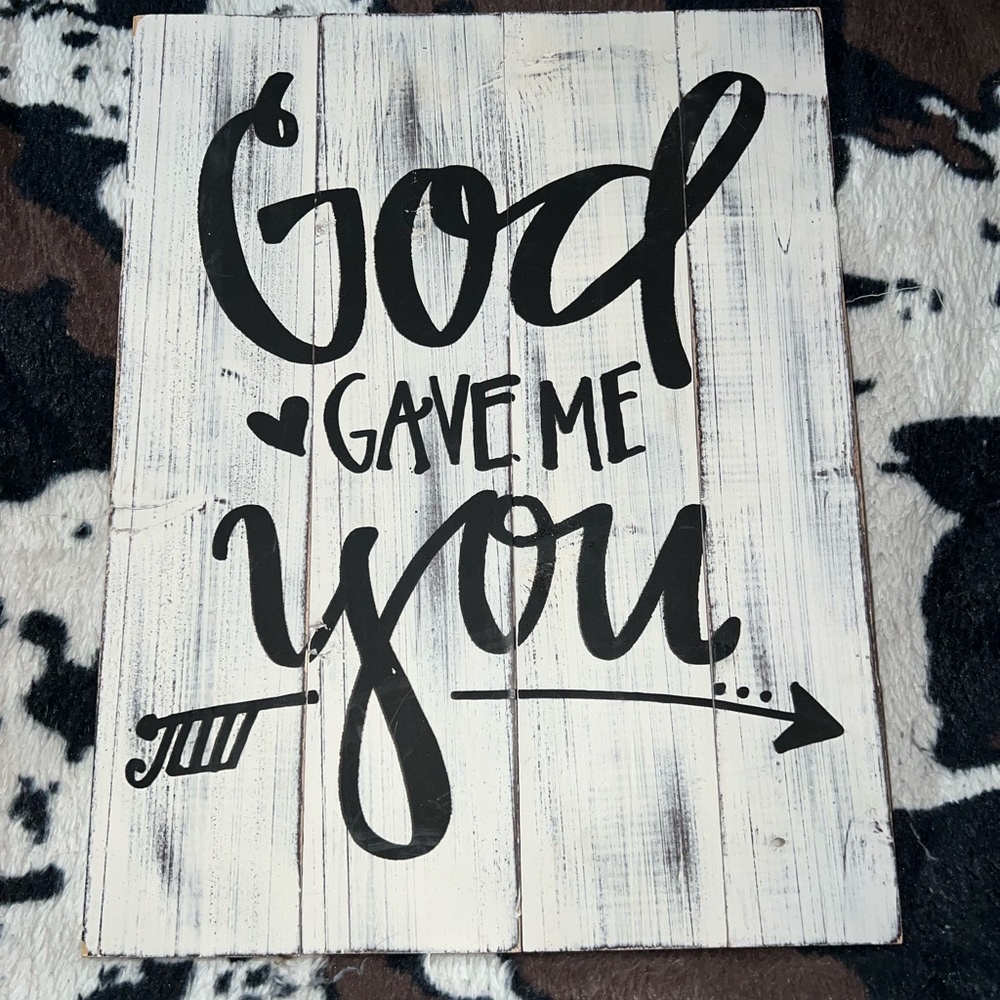 God
GAVE ME
you